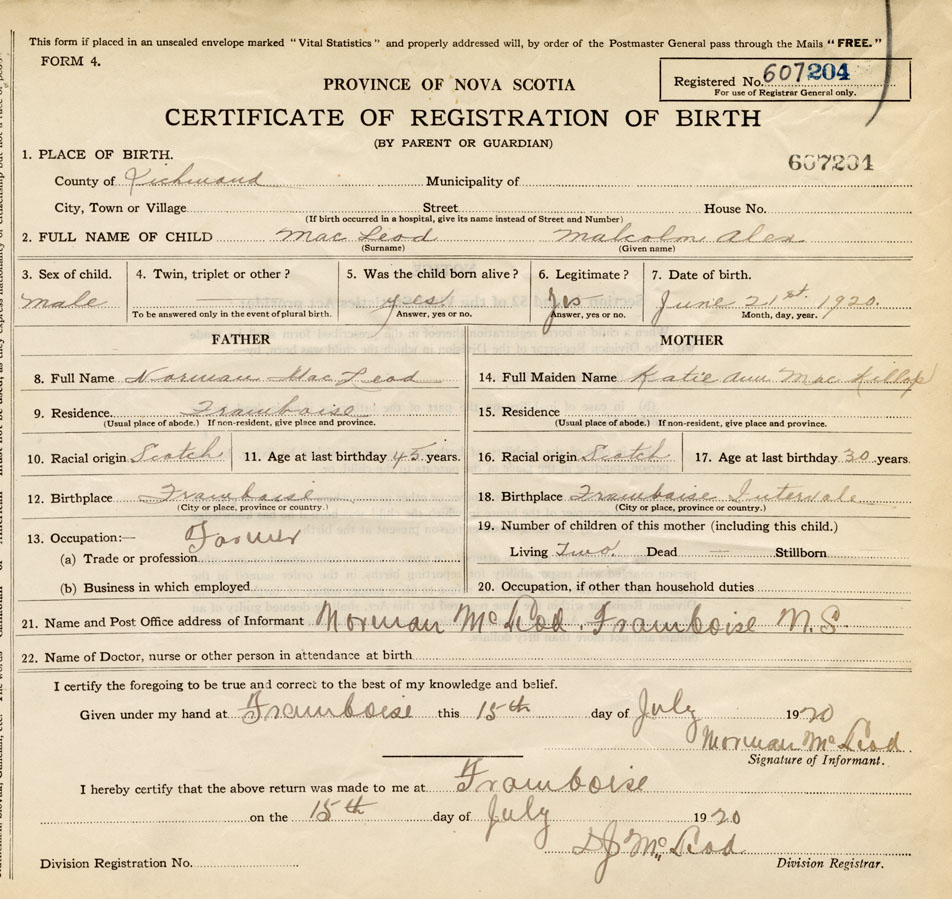 This form if placed in an unsealed envelope marked "Vital Statistics" and properly addressed will, by order of the Postmaster General pass through the Mails "FREE."
FORM 4.
Registered No. 607204
For use of Registrar General only.
PROVINCE OF NOVA SCOTIA
CERTIFICATE OF REGISTRATION OF BIRTH
(BY PARENT OR GUARDIAN)
607204
1. PLACE OF BIRTH.
County of Richmond Municipality of
City, Town or Village Street House No.
(If birth occurred in a hospital, give its name instead of Street and Number)
2. FULL NAME OF CHILD Mac Leod Malcolm Alex
(Surname) (Given name)
3. Sex of child. 4. Twin, triplet or other? 5. Was the child born alive? 6. Legitimate? 7. Date of birth.
Male yes yes June 21st. 1920.
To be answered only in the event of plural birth. Answer, yes or no. Answer, yes or no. Month, day, year.
FATHER MOTHER
8. Full Name Norman Mac Leod 14. Full Maiden Name Katie Ann Mac Killop
9. Residence. Framboise 15. Residence
(Usual place of abode.) If non-resident, give place and province. (Usual place of abode.) If non-resident, give place and province.
10. Racial origin Scotch 11. Age at last birthday 45 years. 16. Racial origin Scotch 17. Age at last birthday 30 years.
12. Birthplace Framboise 18. Birthplace Framboise Intervale
(City or place, province or country.) (City or place, province or country.)
13. Occupation:— Farmer 19. Number of children of this mother (including this child.)
(a) Trade or profession Living Two Dead — Stillborn
(b) Business in which employed 20. Occupation, if other than household duties
21. Name and Post Office address of Informant Norman McLeod, Framboise N.S.
22. Name of Doctor, nurse or other person in attendance at birth
I certify the foregoing to be true and correct to the best of my knowledge and belief.
Given under my hand at Framboise this 15th day of July 1920
Norman McLeod.
Signature of Informant.
I hereby certify that the above return was made to me at Framboise
on the 15th day of July 1920
McLeod
Division Registration No. Division Registrar.